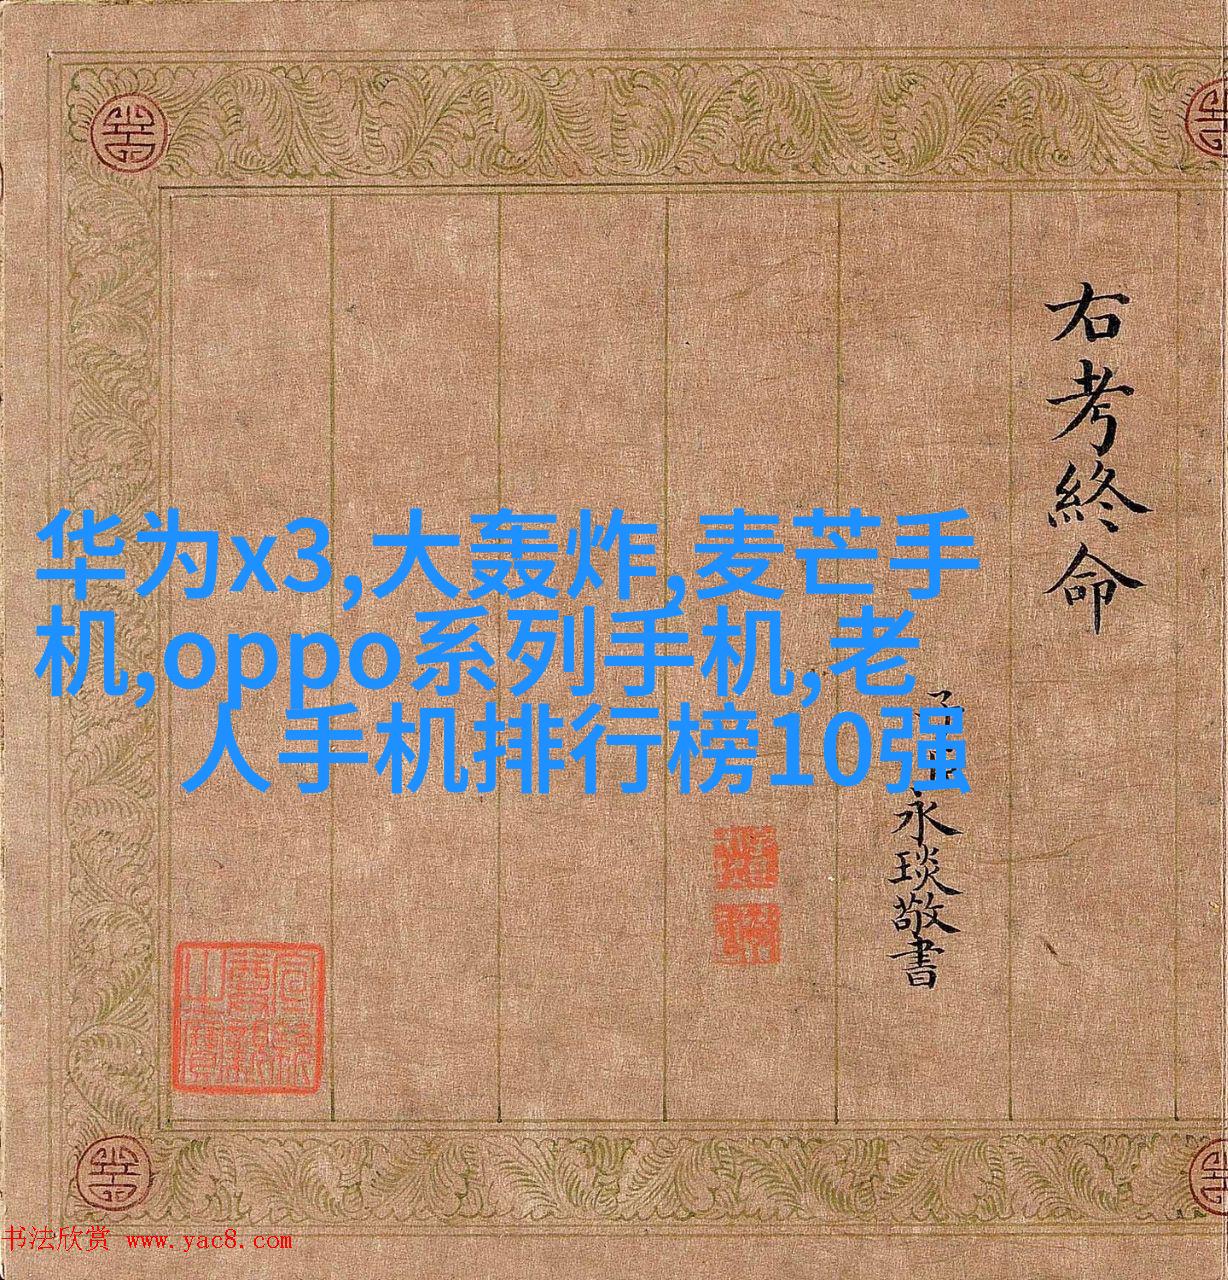 华为x3,大轰炸,麦芒手
机,oppo系列手机,老
人手机排行榜10强
右考終命
永琰敬書
书法欣赏 www.yac8.com